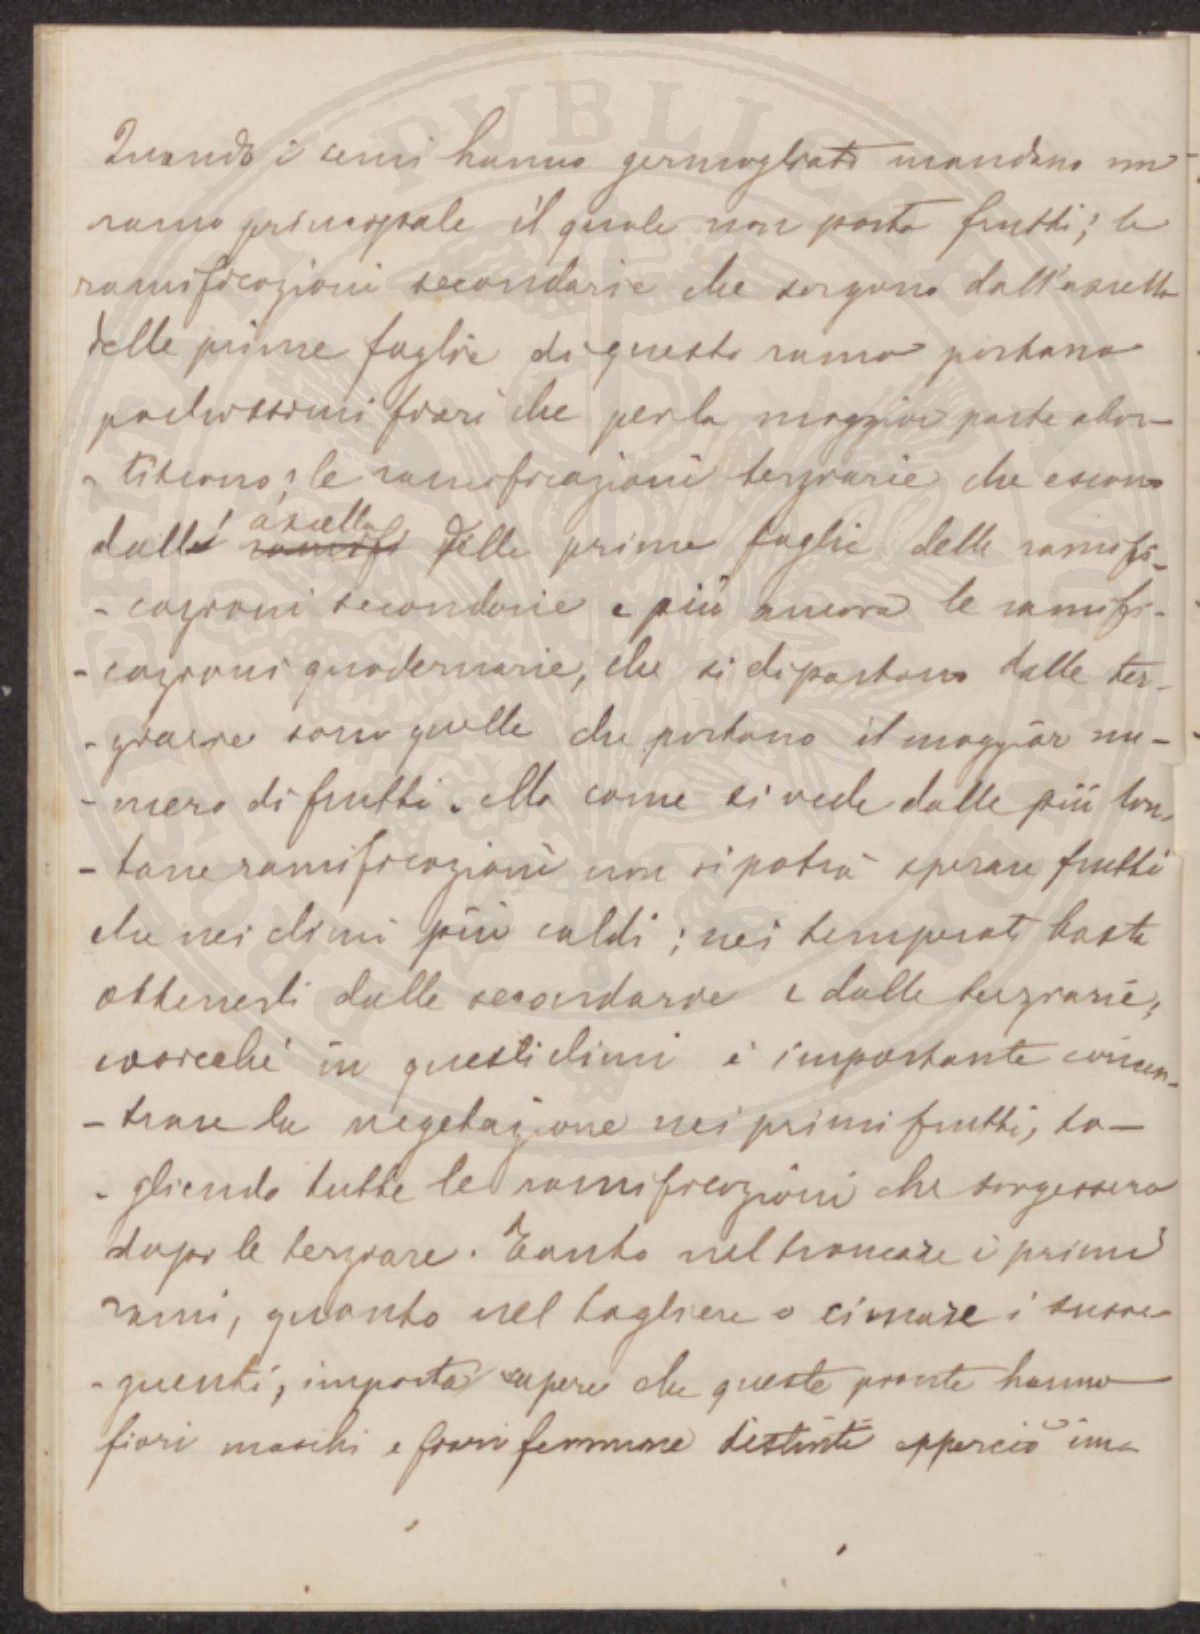 Quando i semi hanno germogliato mandano un
ramo principale il quale non porta frutti; le
ramificazioni secondarie che sorgono dall'ascella
delle prime foglie di questo ramo portano
pochissimi fiori che per la maggior parte abor-
-tiscono; le ramificazioni terziarie che escono
dall' ascella ramifi delle prime foglie delle ramifi-
-cazioni secondarie e più ancora le ramifi-
-cazioni quadernarie, che si dipartono dalle ter-
-ziarie sono quelle che portano il maggior nu-
-mero di frutti. Ma come si vede dalle più lon-
-tane ramificazioni non si potrà sperare frutti
che nei climi più caldi; nei temperati basta
ottenerli dalle secondarie e dalle terziarie,
cosicché in questi climi è importante concen-
-trare la vegetazione nei primi frutti, ta-
-gliendo tutte le ramificazioni che sorgessero
dopo le terziare. Tanto nel troncare i primi
rami, quanto nel togliere o cimare i susse-
-guenti, importa sapere che queste piante hanno
fiori maschi e fiori femmine distinti epperciò im-